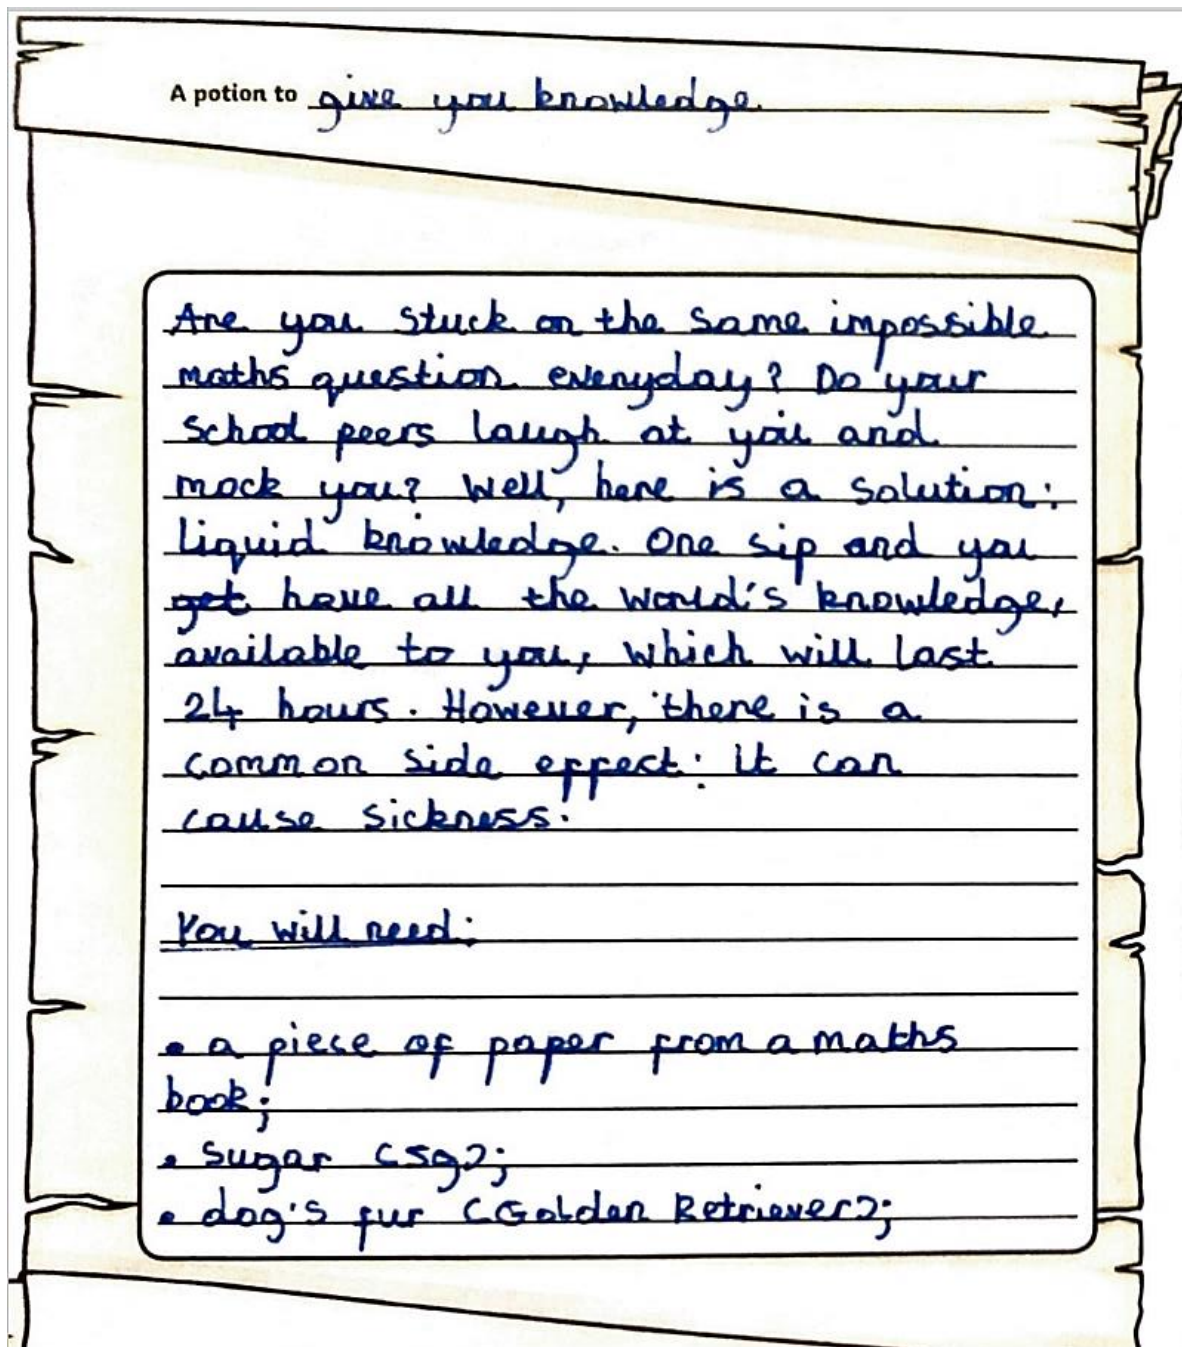 A potion to give you knowledge.
Are you stuck on the same impossible
maths question everyday? Do your
school peers laugh at you and
mock you? Well, here is a solution:
liquid knowledge. One sip and you
~~get~~ have all the world's knowledge,
available to you, which will last
24 hours. However, there is a
common side effect: it can
cause sickness.
You will need:
• a piece of paper from a maths
book;
• sugar (5g);
• dog's fur (Golden Retriever);